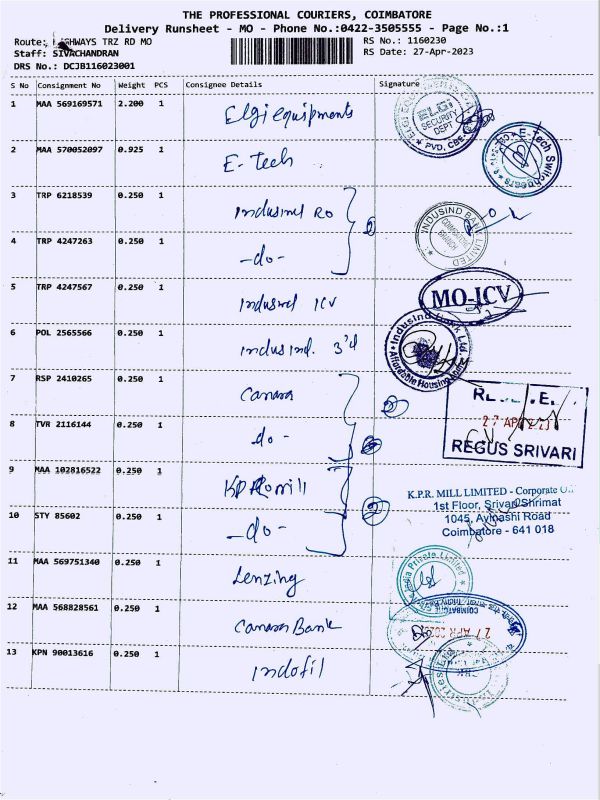 THE PROFESSIONAL COURIERS, COIMBATORE
Delivery Runsheet - MO - Phone No.:0422-3505555 - Page No.:1
Route: HIGHWAYS TRZ RD MO
RS No.: 1160230
Staff: SIVACHANDRAN
RS Date: 27-Apr-2023
DRS No.: DCJB116023001
S No Consignment No Weight PCS Consignee Details Signature
1 MAA 569169571 2.200 1 Elgi equipments
ELGI SECURITY DEPT PVD. CBE
2 MAA 570052097 0.925 1 E-Tech
E-Tech Switchgears
3 TRP 6218539 0.250 1 Indusind RO
INDUSIND BANK LIMITED COIMBATORE BRANCH
4 TRP 4247263 0.250 1 -do-
5 TRP 4247567 0.250 1 Indusind ICV
MO-ICV
6 POL 2565566 0.250 1 Indusind. 3'd
IndusInd Bank Ltd Affordable Housing
7 RSP 2410265 0.250 1 Canara
27 APR 2023
REGUS SRIVARI
8 TVR 2116144 0.250 1 do-
9 MAA 102816522 0.250 1 KPR mill
K.P.R. MILL LIMITED - Corporate
1st Floor, Srivari Shrimat
1045, Avinashi Road
Coimbatore - 641 018
10 STY 85602 0.250 1 -do-
11 MAA 569751340 0.250 1 Lenzing
India Private Limited
12 MAA 568828561 0.250 1 Canara Bank
COIMBATORE
27 APR
13 KPN 90013616 0.250 1 Indofil